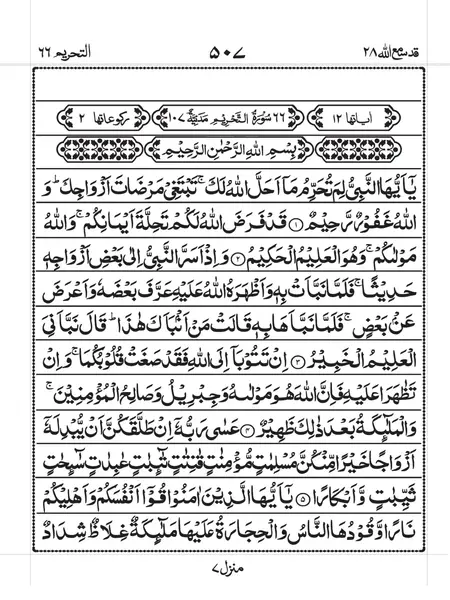 التحريم ٦٦ ٥٠٧ قد سمع الله ٢٨
اٰیاتها ١٢ ٦٦ سُوْرَةُ التَّحْرِيْمِ مَدَنِيَّةٌ ١٠٧ رکوعاتها ٢
بِسْمِ اللّٰهِ الرَّحْمٰنِ الرَّحِيْمِ
يٰۤاَيُّهَا النَّبِيُّ لِمَ تُحَرِّمُ مَاۤ اَحَلَّ اللّٰهُ لَكَ ۚ تَبْتَغِيْ مَرْضَاتَ اَزْوَاجِكَ ؕ وَ
اللّٰهُ غَفُوْرٌ رَّحِيْمٌ ۝١ قَدْ فَرَضَ اللّٰهُ لَكُمْ تَحِلَّةَ اَيْمَانِكُمْ ۚ وَاللّٰهُ
مَوْلٰىكُمْ ۚ وَهُوَ الْعَلِيْمُ الْحَكِيْمُ ۝٢ وَاِذْ اَسَرَّ النَّبِيُّ اِلٰى بَعْضِ اَزْوَاجِهٖ
حَدِيْثًا ۚ فَلَمَّا نَبَّاَتْ بِهٖ وَاَظْهَرَهُ اللّٰهُ عَلَيْهِ عَرَّفَ بَعْضَهٗ وَاَعْرَضَ
عَنْۢ بَعْضٍ ۚ فَلَمَّا نَبَّاَهَا بِهٖ قَالَتْ مَنْ اَنْۢبَاَكَ هٰذَا ؕ قَالَ نَبَّاَنِيَ
الْعَلِيْمُ الْخَبِيْرُ ۝٣ اِنْ تَتُوْبَاۤ اِلَى اللّٰهِ فَقَدْ صَغَتْ قُلُوْبُكُمَا ۚ وَاِنْ
تَظٰهَرَا عَلَيْهِ فَاِنَّ اللّٰهَ هُوَ مَوْلٰىهُ وَجِبْرِيْلُ وَصَالِحُ الْمُؤْمِنِيْنَ ۚ
وَالْمَلٰٓئِكَةُ بَعْدَ ذٰلِكَ ظَهِيْرٌ ۝٤ عَسٰى رَبُّهٗۤ اِنْ طَلَّقَكُنَّ اَنْ يُّبْدِلَهٗۤ
اَزْوَاجًا خَيْرًا مِّنْكُنَّ مُسْلِمٰتٍ مُّؤْمِنٰتٍ قٰنِتٰتٍ تٰٓئِبٰتٍ عٰبِدٰتٍ سٰٓئِحٰتٍ
ثَيِّبٰتٍ وَّاَبْكَارًا ۝٥ يٰۤاَيُّهَا الَّذِيْنَ اٰمَنُوْا قُوْۤا اَنْفُسَكُمْ وَاَهْلِيْكُمْ
نَارًا وَّقُوْدُهَا النَّاسُ وَالْحِجَارَةُ عَلَيْهَا مَلٰٓئِكَةٌ غِلَاظٌ شِدَادٌ
منزل ٧